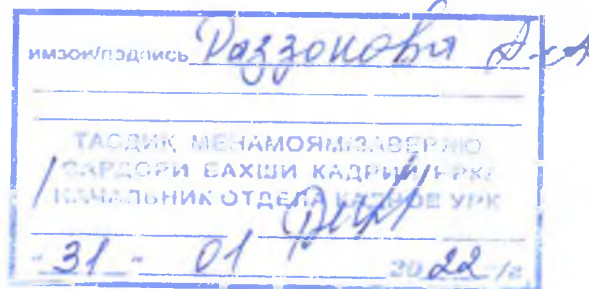 имзои/подпись Раззокова
ТАСДИҚ МЕНАМОЯМ/ЗАВЕРЯЮ
САРДОРИ БАХШИ КАДРИИ
НАЧАЛЬНИК ОТДЕЛА КАДРОВ УРК
- 31 - 01 2022 /г